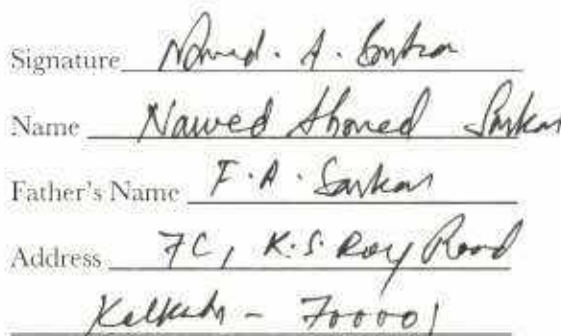 Signature Nawed. A. Sarkar
Name Nawed Ahmed Sarkar
Father's Name F.A. Sarkar
Address 7C, K.S. Roy Road
Kolkata - 700001